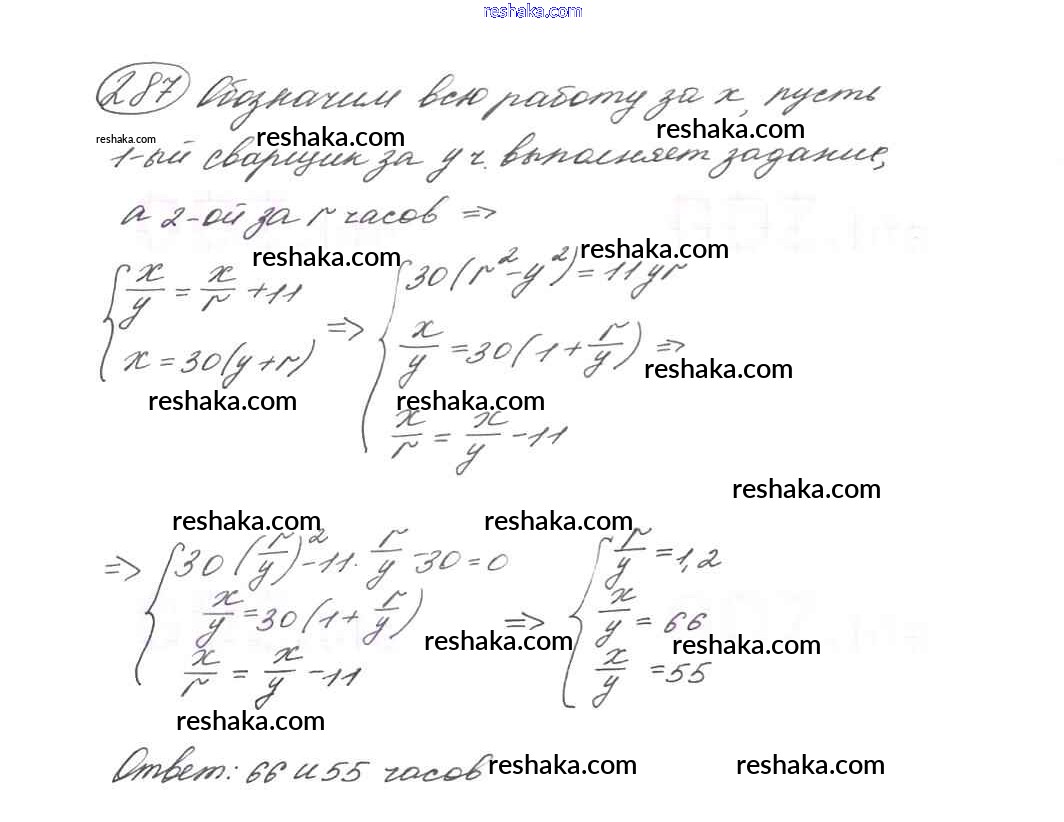 reshaka.com
287 Обозначим всю работу за x, пусть
reshaka.com reshaka.com reshaka.com
1-ый сварщик за y ч. выполняет задание,
а 2-ой за r часов =>
reshaka.com reshaka.com
{ x/y = x/r + 11
x = 30(y+r)
=> { 30(r² - y²) = 11yr
x/y = 30(1 + r/y) =>
x/r = x/y - 11
reshaka.com
reshaka.com reshaka.com
reshaka.com
reshaka.com reshaka.com
=> { 30(r/y)² - 11·r/y - 30 = 0
x/y = 30(1 + r/y)
x/r = x/y - 11
=> { r/y = 1,2
x/y = 66
x/y = 55
reshaka.com reshaka.com
reshaka.com
Ответ: 66 и 55 часов
reshaka.com reshaka.com